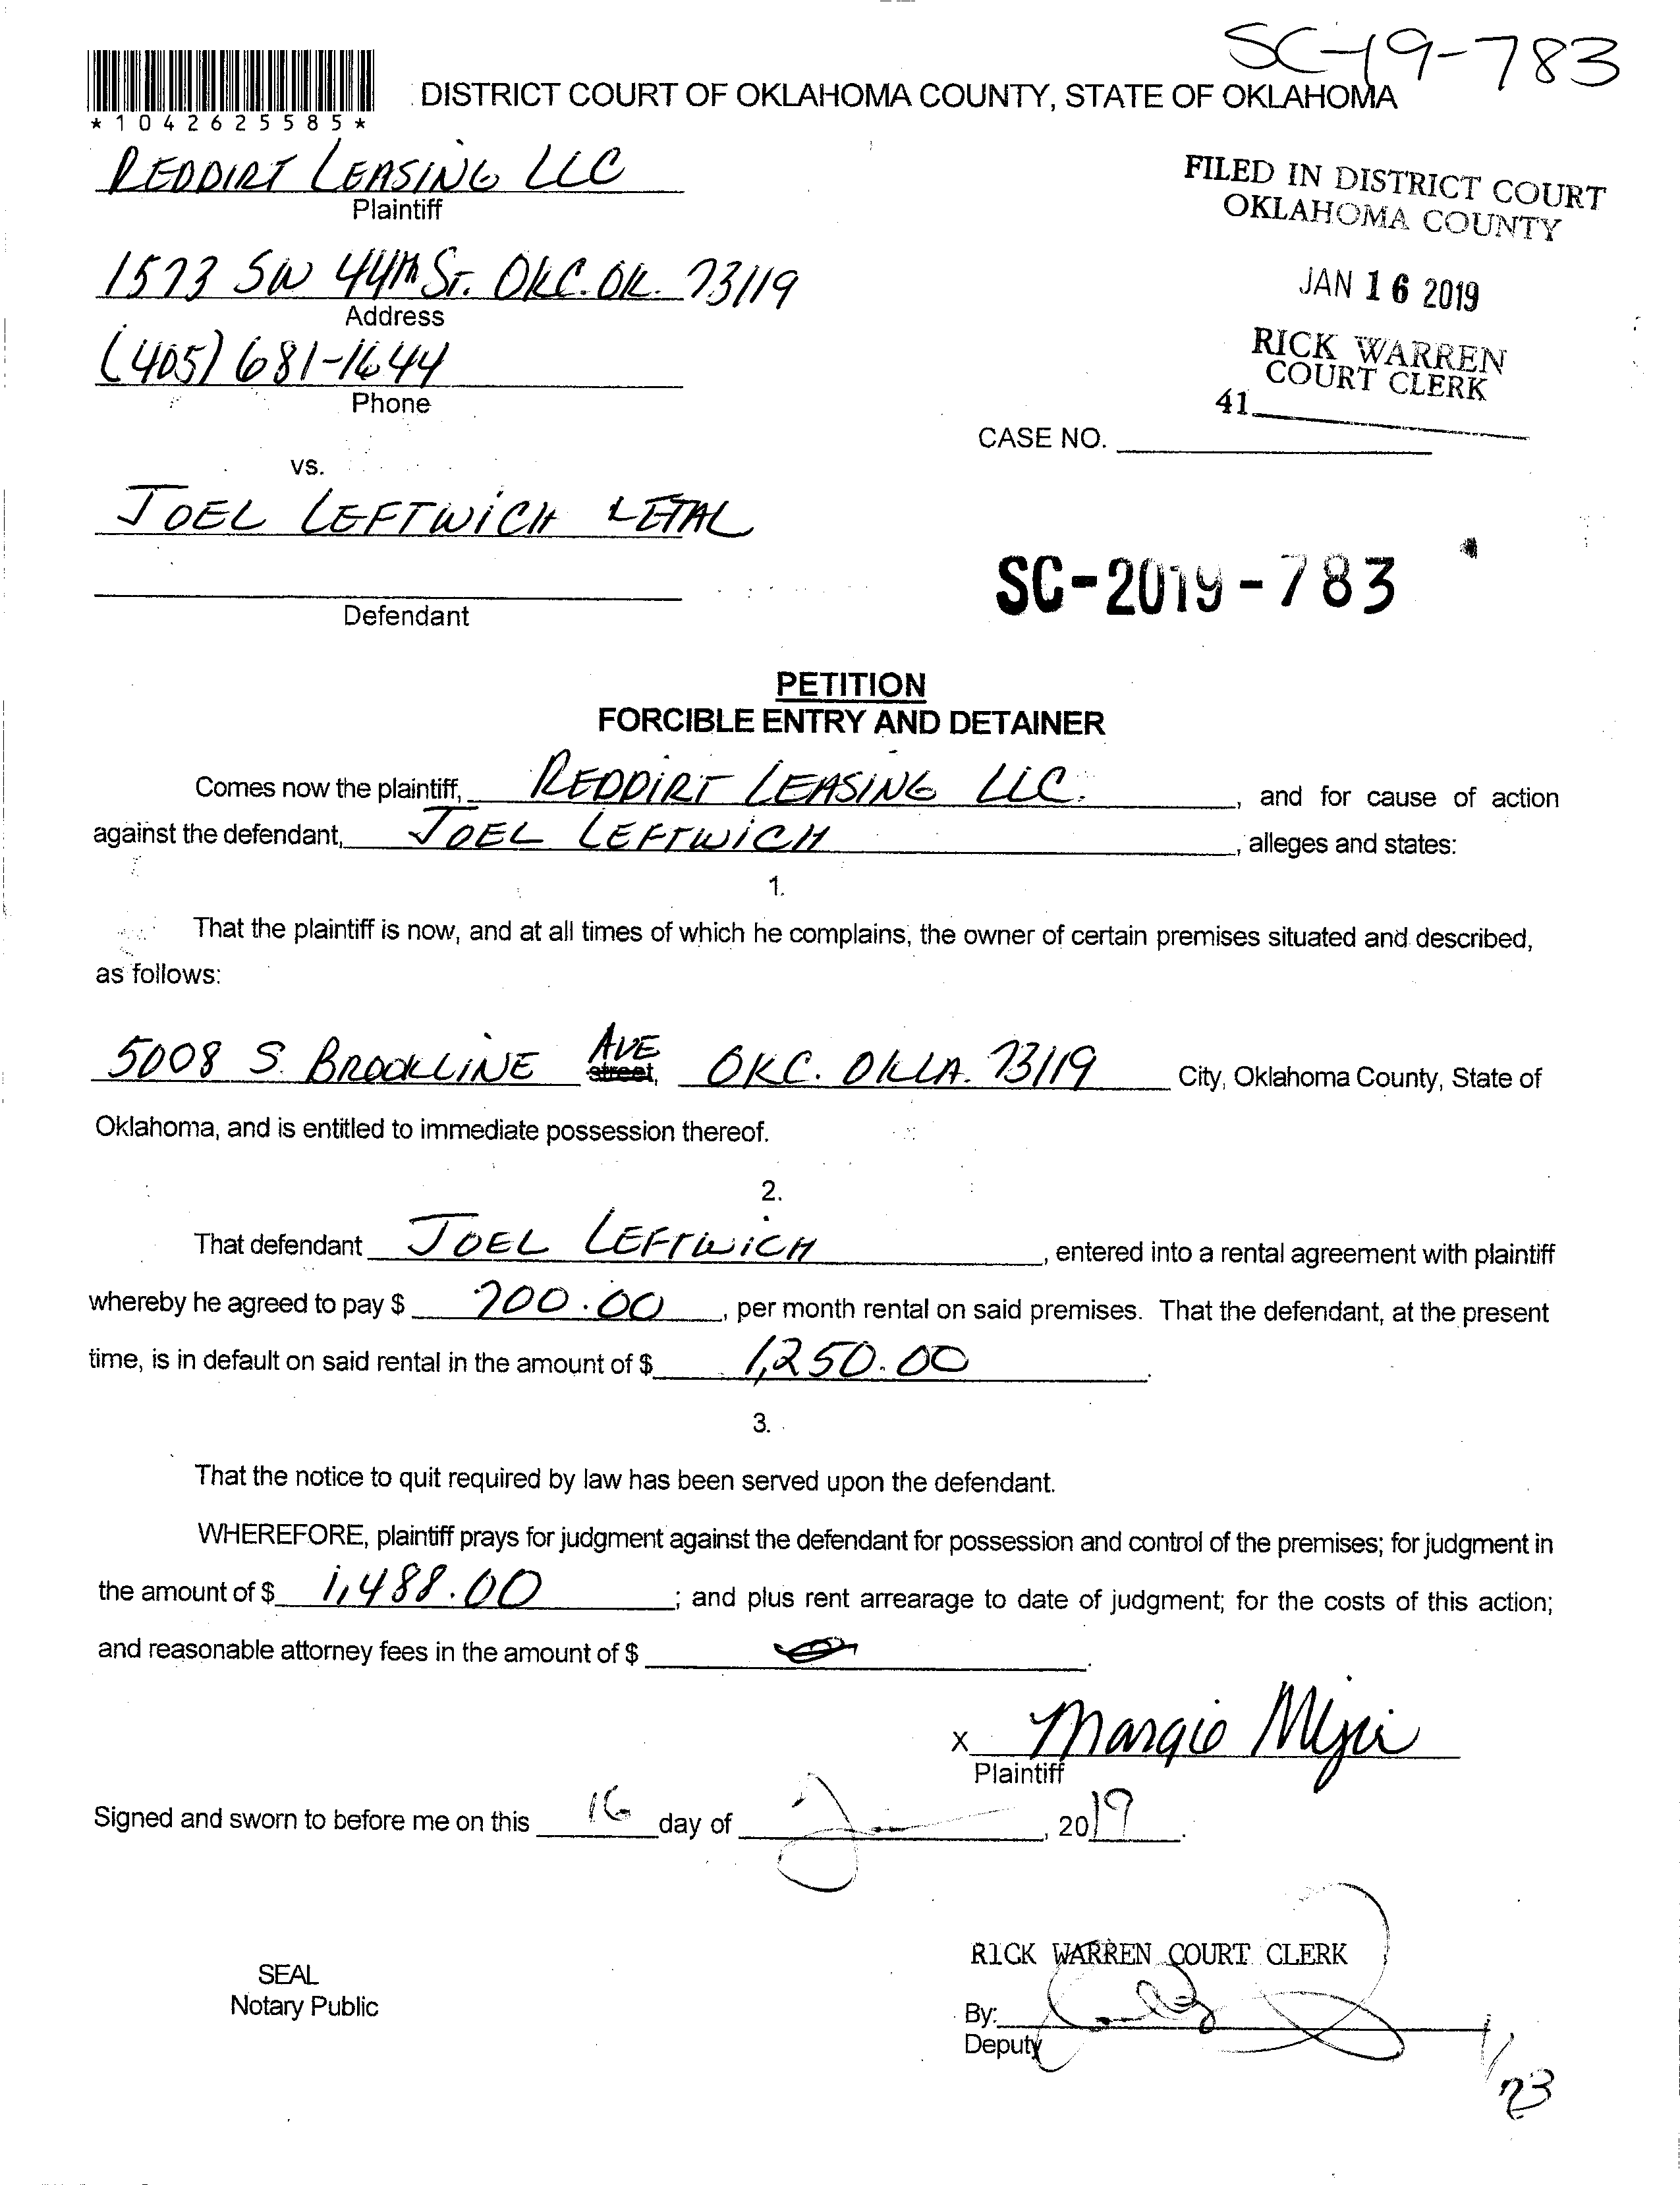 SC-19-783
*1042625585*
DISTRICT COURT OF OKLAHOMA COUNTY, STATE OF OKLAHOMA
REDDIRT LEASING LLC
Plaintiff
FILED IN DISTRICT COURT
OKLAHOMA COUNTY
1573 SW 44th ST. OKC. OK. 73119
Address
JAN 16 2019
(405) 681-1644
Phone
RICK WARREN
COURT CLERK
41
CASE NO.
vs.
JOEL LEFTWICH ETAL
Defendant
SC-2019-783
PETITION
FORCIBLE ENTRY AND DETAINER
Comes now the plaintiff, REDDIRT LEASING LLC. , and for cause of action
against the defendant, JOEL LEFTWICH , alleges and states:
1.
That the plaintiff is now, and at all times of which he complains, the owner of certain premises situated and described,
as follows:
5008 S. BROOKLINE AVE street, OKC. OKLA. 73119 City, Oklahoma County, State of
Oklahoma, and is entitled to immediate possession thereof.
2.
That defendant JOEL LEFTWICH , entered into a rental agreement with plaintiff
whereby he agreed to pay $ 700.00 , per month rental on said premises. That the defendant, at the present
time, is in default on said rental in the amount of $ 1,250.00 .
3.
That the notice to quit required by law has been served upon the defendant.
WHEREFORE, plaintiff prays for judgment against the defendant for possession and control of the premises; for judgment in
the amount of $ 1,488.00 ; and plus rent arrearage to date of judgment; for the costs of this action;
and reasonable attorney fees in the amount of $ .
X Margie
Plaintiff
Signed and sworn to before me on this 16 day of , 2019.
RICK WARREN COURT CLERK
SEAL
Notary Public
By:
Deputy
1/23